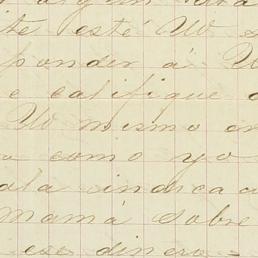 te esté W
ponder á
e califique
W mismo
como yo
indica
Mamá sobre
ese dinero =